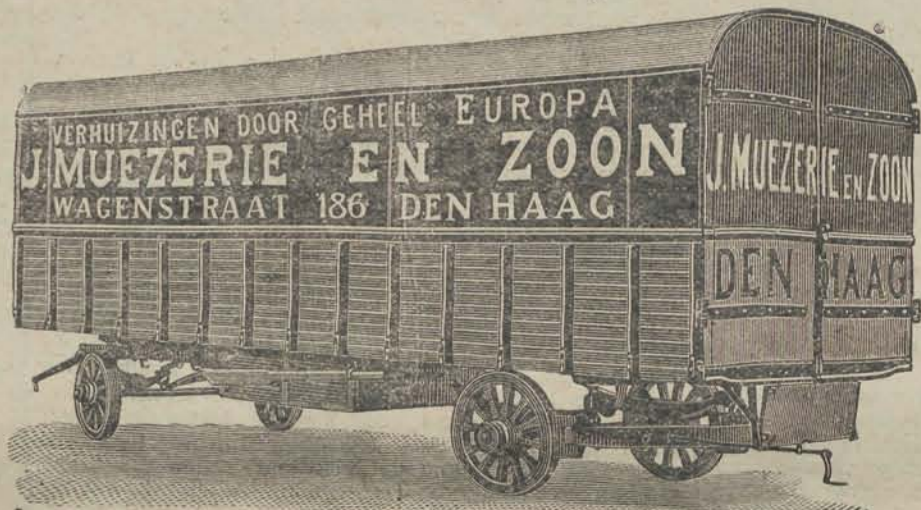 VERHUIZINGEN DOOR GEHEEL EUROPA
J. MUEZERIE EN ZOON
WAGENSTRAAT 186 DEN HAAG
J. MUEZERIE EN ZOON
DEN HAAG